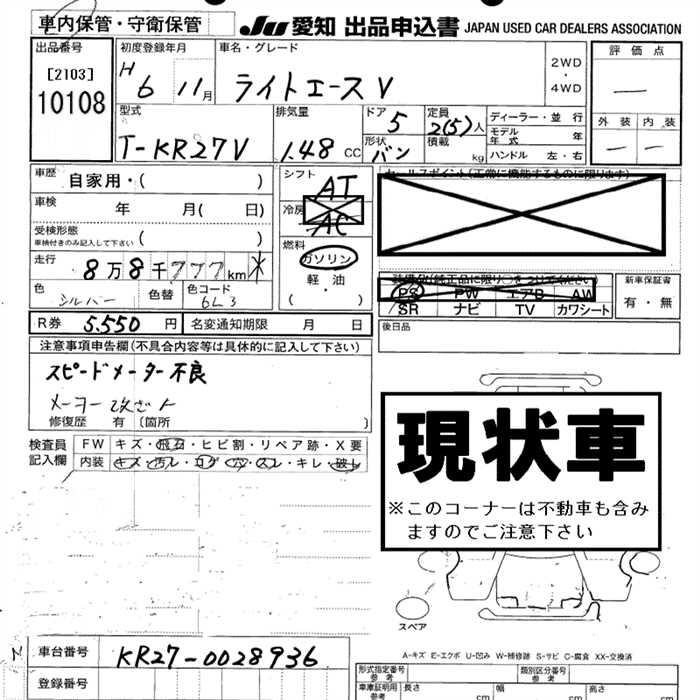 車内保管・守衛保管
JU 愛知 出品申込書 JAPAN USED CAR DEALERS ASSOCIATION
出品番号
[2103]
10108
初度登録年月
H 6 11月
車名・グレード
ライトエース V
2WD
・
4WD
評価点
—
外装 内装
— —
型式
T-KR27V
排気量
1.48 CC
ドア
5
定員
2(5)人
形状
バン
積載
kg
ディーラー・並行
モデル年式 年
ハンドル 左・右
車歴
自家用・( )
車検
年 月( 日)
受検形態
車検付きのみ記入して下さい ( )
走行
8万8千777km
色
シルバー
色替
色コード
6L3
シフト
AT
冷房
AC
燃料
ガソリン
・
軽油
( )
セールスポイント(正常に機能するものに限ります)
装備品(純正品に限り○をつけてください)
PS PW エアB AW
SR ナビ TV カワシート
新車保証書
有・無
後日品
R券 5.550 円
名変通知期限 月 日
注意事項申告欄(不具合内容等は具体的に記入して下さい)
スピードメーター不良
メーター改ざん
修復歴 有 (箇所 )
検査員
記入欄
FW キズ・飛石・ヒビ割・リペア跡・X要
内装 キズ・汚レ・コゲ・穴・スレ・キレ・破レ
現状車
※このコーナーは不動車も含み
ますのでご注意下さい
スペア
A-キズ E-エクボ U-凹み W-補修跡 S-サビ C-腐食 XX-交換済
車台番号
KR27-0028936
登録番号
形式指定番号
参考
類別区分番号
参考
車庫証明用
参考
長さ cm
幅 cm
高さ cm